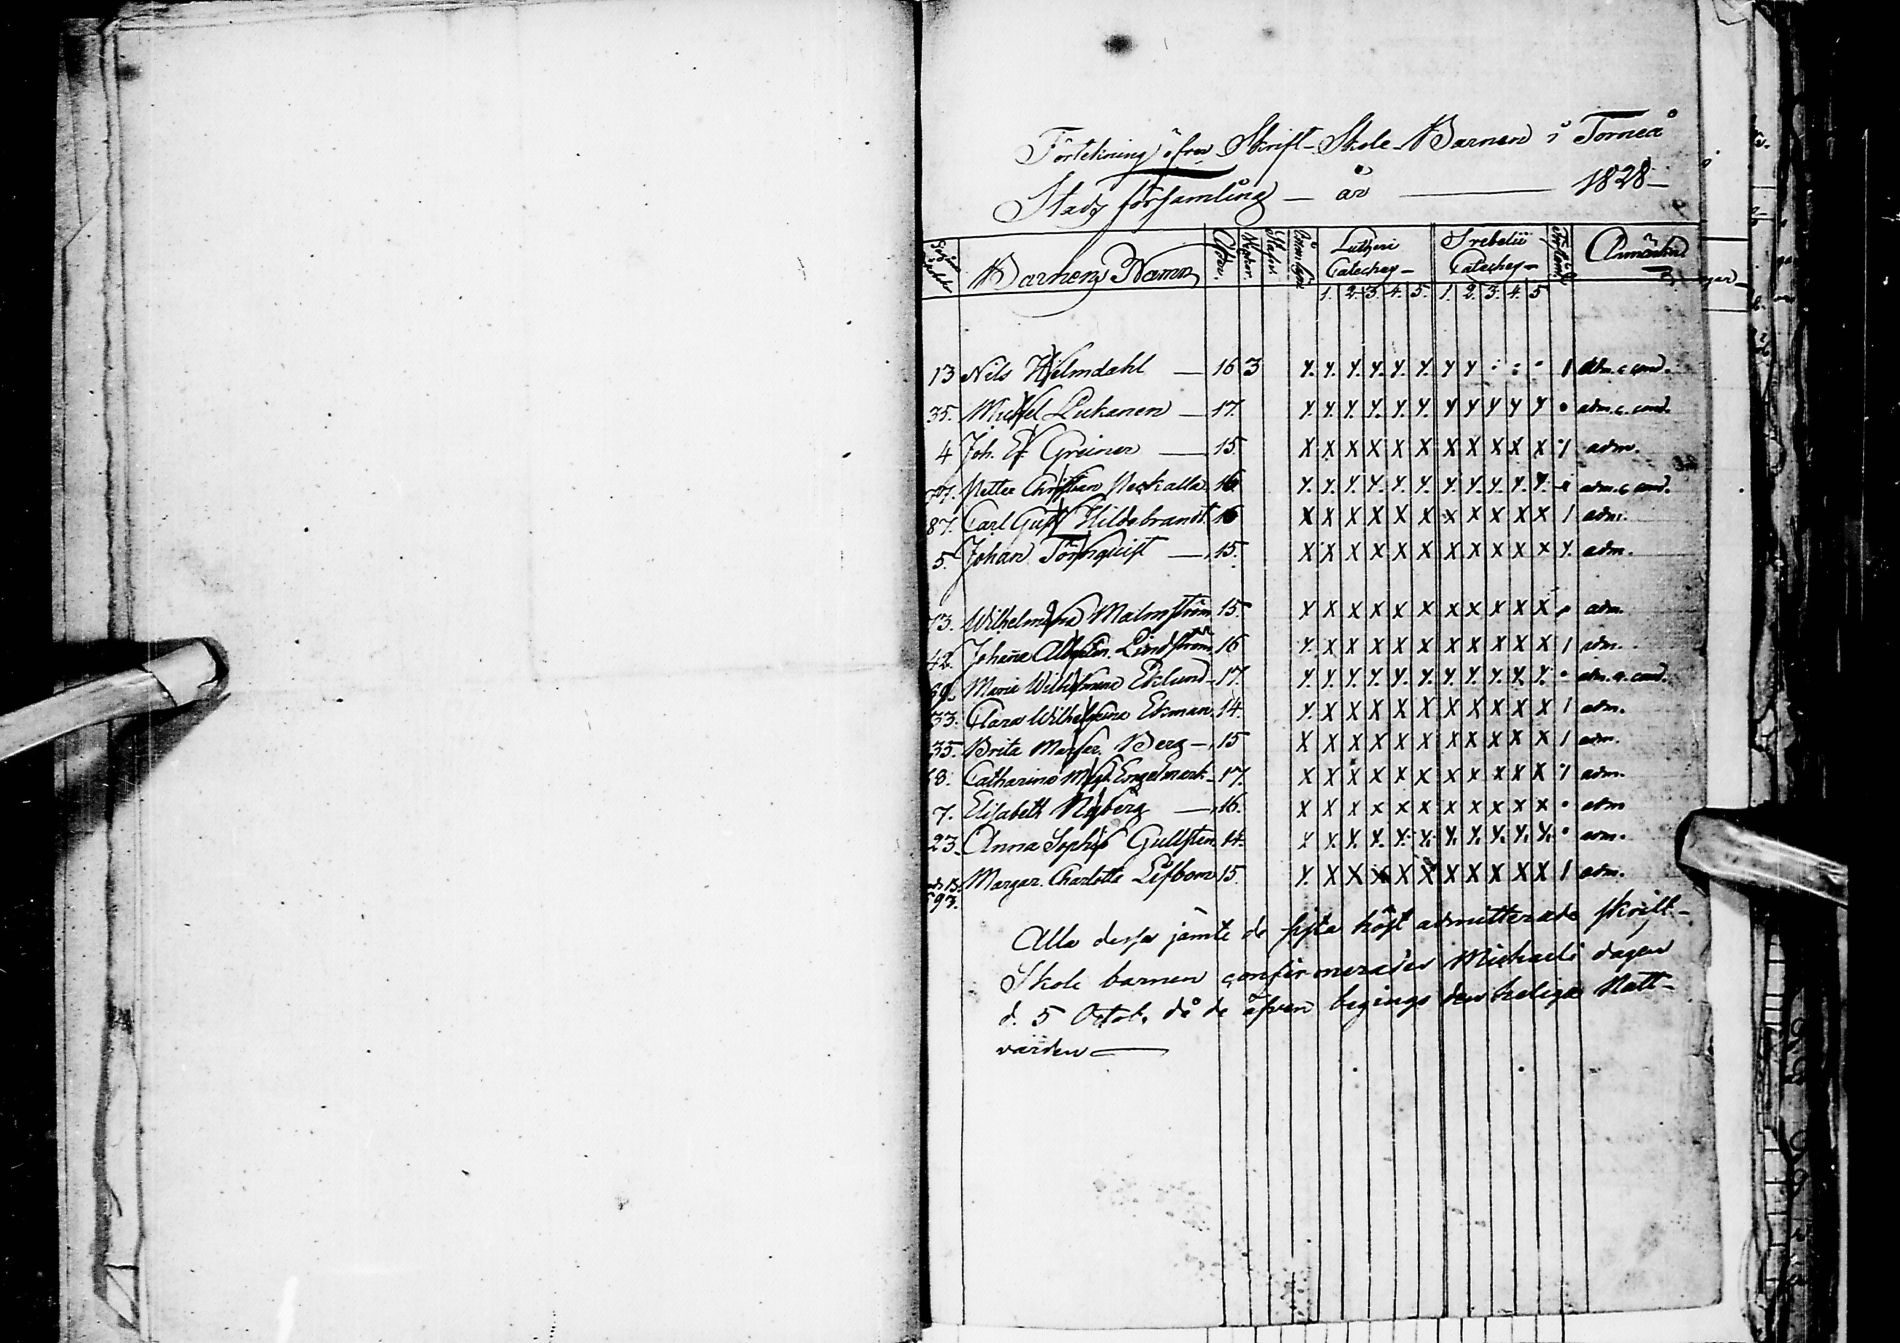 Förtekning öfver Skrift-Skole-Barnen i Torneå
Stads församling — år — 1828 —
Barnens Namn Ålder. Lutheri Cateches- Svebelii Cateches- Anmärkn
1. 2. 3. 4. 5. 1. 2. 3. 4. 5
13 Nils Hielmdahl — 16 3 Y. Y. Y. Y. Y. Y. Y Y : : · 1 adm. c. cond.
35. Michel Lukanen — 17. Y. Y. Y. Y. Y. Y. Y Y Y Y Y · adm. c. cond.
4 Joh. Er. Greiner — 15. X X X X X X X X X X X 1 adm.
Petter Christian Neckalla 16 Y. Y. Y. Y. Y. Y. Y. Y. Y. Y. Y. · adm. c. cond.
87. Carl Gust. Hildebrandt 16 X X X X X X X X X X X 1 adm.
5. Johan Törnquist — 15. X X X X X X X X X X X Y. adm.
73. Wilhelmina Malmström 15. X X X X X X X X X X X · adm.
42. Johanna Albertin. Lindström 16 Y. X X X X X X X X X X 1 adm.
Maria Wilhelmina Eklund — 17. Y. Y. Y. Y. Y. Y. Y. Y. Y. Y. Y. · adm. c. cond.
33. Clara Wilhelmina Ekman. 14. Y. X X X X X X X X X X 1 adm.
35. Brita Margar. Berg — 15 X X X X X X X X X X X 1 adm.
8. Catharina Marg. Engelmark 17. X X X X X X X X X X X 1 adm.
7. Elisabeth Nyberg — 16. X X X X X X X X X X X · adm
23. Anna Sophia Gullsten 14. Y Y. Y. Y. Y. Y. Y. Y. Y. Y. Y. · adm.
Margar. Charlotta Lifbom 15. Y. X X X X X X X X X X 1 adm.
93.
Alla dessa jämte de sista höst admitterade skrift-
Skole barnen confirmerades Michaeli dagen
d. 5 Octob. då de äfven begingo den heliga Natt-
varden —